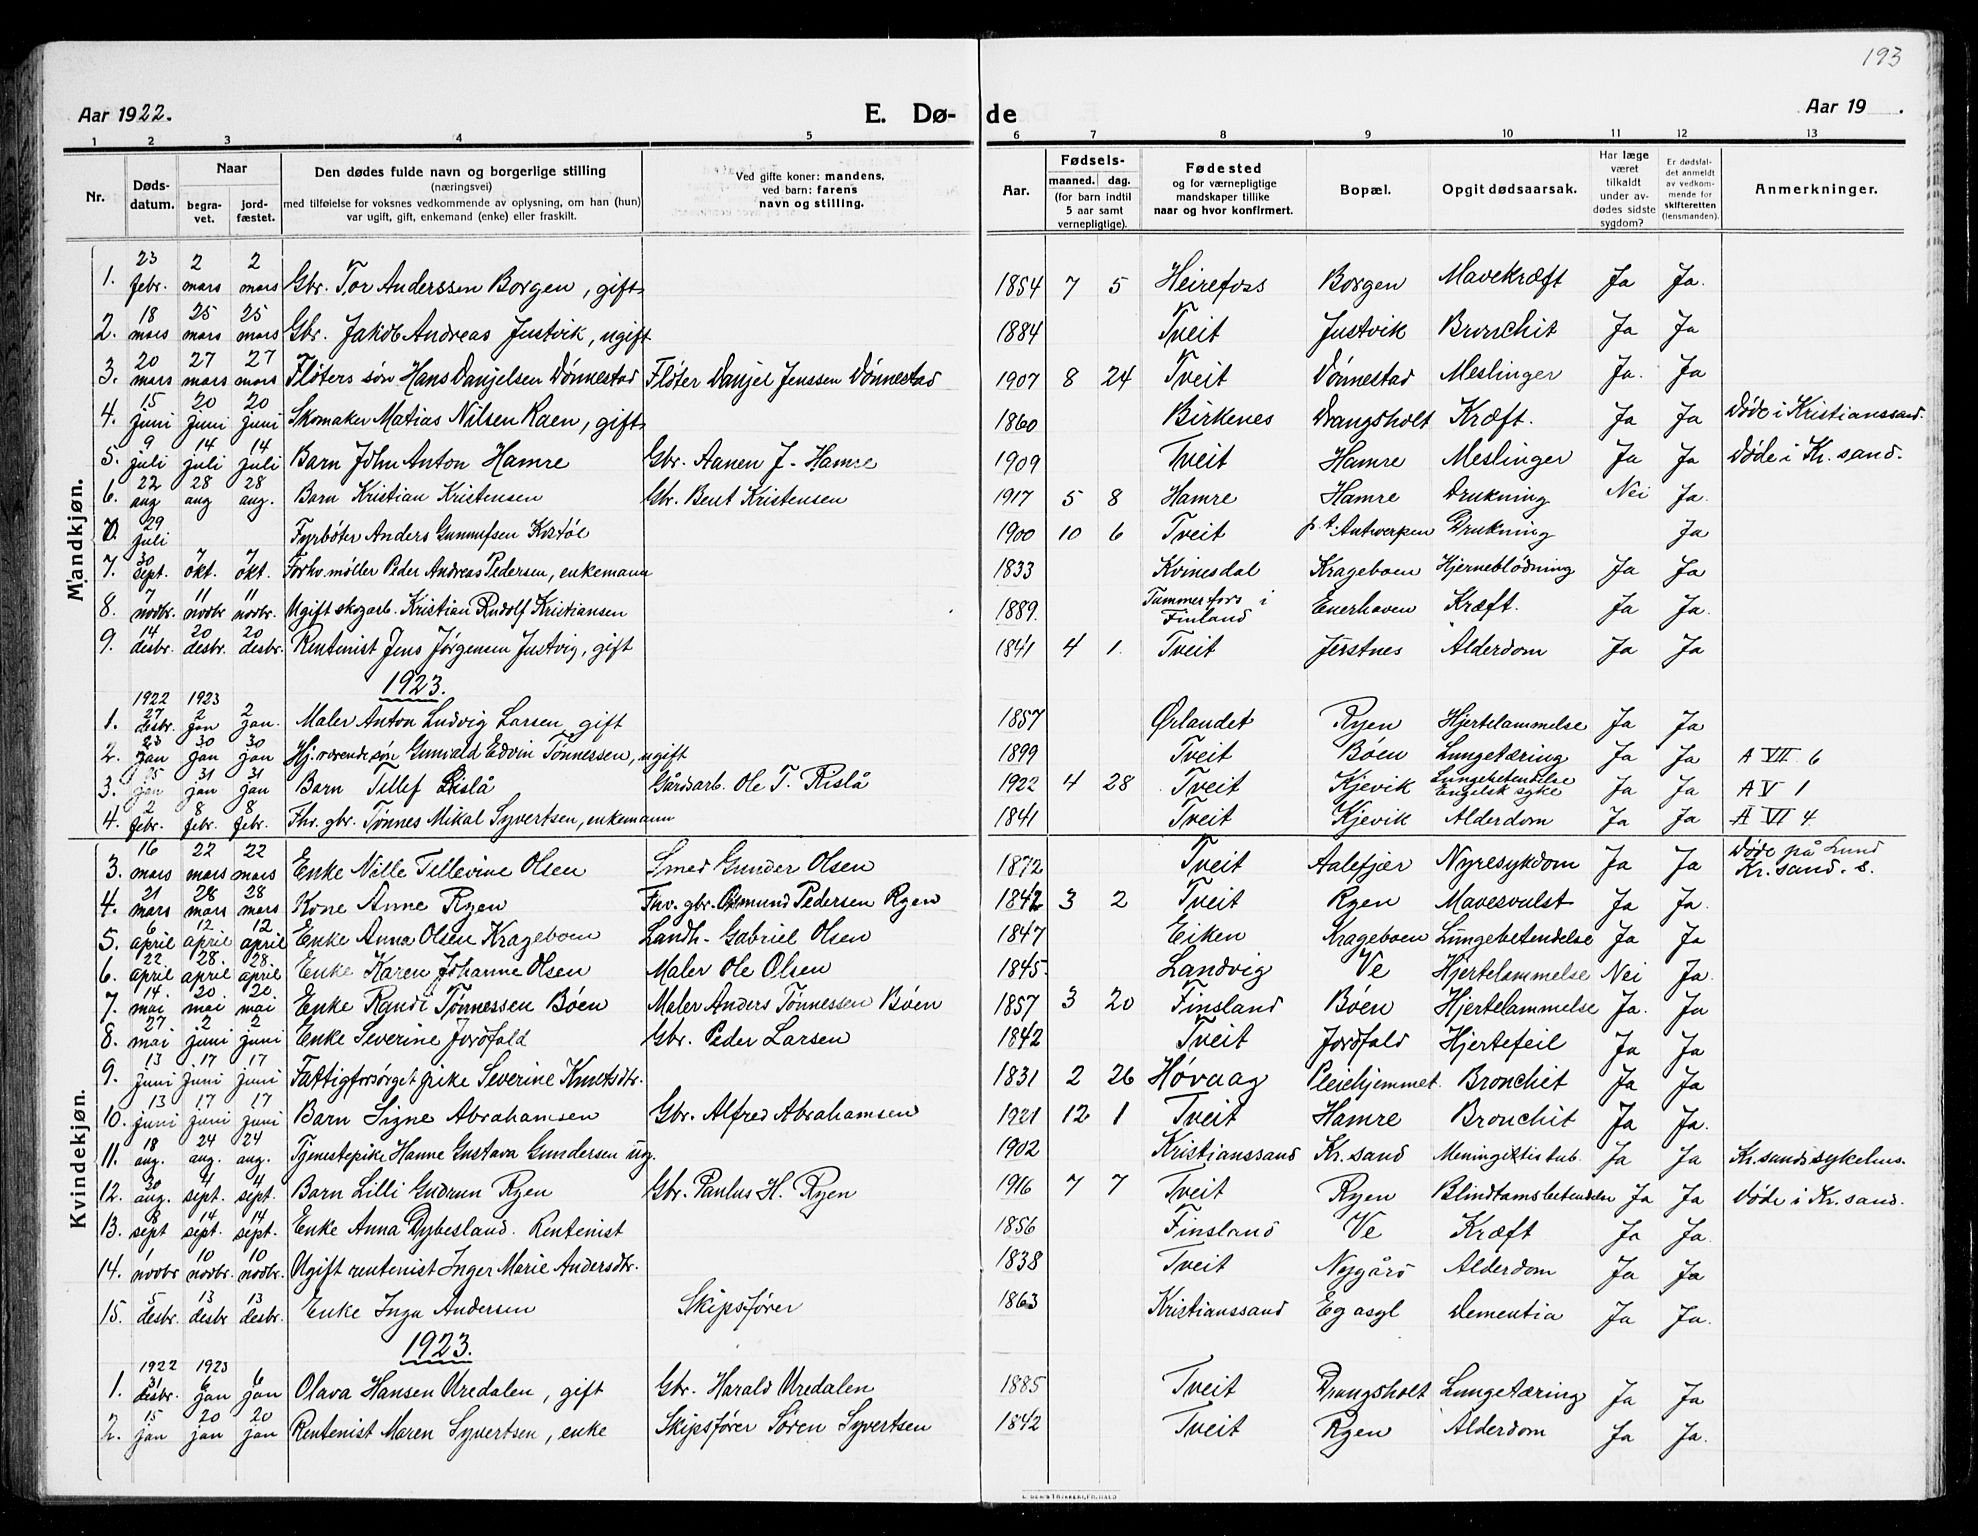 193
Aar 1922. E. Dø- de Aar 19 .
1 2 3 4 5 6 7 8 9 10 11 12 13
Nr. Døds-datum. Naar begra-vet. jord-fæstet. Den dødes fulde navn og borgerlige stilling (næringsvei) med tilføielse for voksnes vedkommende av oplysning, om han (hun) var ugift, gift, enkemand (enke) eller fraskilt. Ved gifte koner: mandens, ved barn: farens navn og stilling. Aar. Fødsels- maaned. dag. (for barn indtil 5 aar samt vernepligtige). Fødested og for værnepligtige mandskaper tillike naar og hvor konfirmert. Bopæl. Opgit dødsaarsak. Har læge været tilkaldt under av-dødes sidste sygdom? Er dødsfal-det anmeldt av vedkom-mende for skifteretten (lensmanden). Anmerkninger.
Mandkjøn.
1. 23 febr. 2 mars 2 mars Gbr. Tor Anderssen Borgen, gift 1854 7 5 Heirefoss Borgen Mavekræft Ja Ja.
2. 18 mars 25 mars 25 mars Gbr. Jakob Andreas Justvik, ugift 1884 Tveit Justvik Bronchit Ja Ja
3. 20 mars 27 mars 27 mars Fløters søn Hans Danjelsen Dønnestad Fløter Danjel Jenssen Dønnestad 1907 8 24 Tveit Dønnestad Meslinger Ja. Ja
4. 15 juni 20 juni 20 juni Skomaker Matias Nilsen Raen, gift 1860 Birkenes Drangsholt Kræft. Ja Ja Døde i Kristianssand.
5. 9 juli 14 juli 14 juli Barn John Anton Hamre Gbr. Aanen J. Hamre 1909 Tveit Hamre Meslinger Ja Ja Døde i Kr. sand.
6. 22 aug 28 aug 28 aug. Barn Kristian Kristensen Gbr. Bent Kristensen 1917 5 8 Hamre Hamre Drukning Nei Ja.
29 juli Fyrbøter Anders Gunnufsen Kostøl 1900 10 6 Tveit p. t. Antwerpen Drukning Ja
7. 30 sept. 7 okt. 7 økt. Forhv. møller Peder Andreas Pedersen, enkemann 1833 Kvinesdal Krageboen Hjerneblødning Ja Ja
8. 7 novbr. 11 novbr 11 novbr. Ugift skogarb. Kristian Rudolf Kristiansen 1889. Tammerfors i Finland Enerhaven Kræft. Ja Ja.
9. 14 desbr. 20 desbr. 20 desbr. Rentenist Jens Jørgensen Justvig, gift 1841 4 1. Tveit Jerstnes Alderdom Ja Ja
1923.
1922 1923
1. 27 desbr. 2 jan 2 jan. Maler Anton Ludvig Larsen, gift 1857 Ørlandet Ryen Hjertelammelse Ja Ja
2. 23 jan 30 jan 30 jan Hj. værende søn Gunvald Edvin Tønnessen, ugift 1899 Tveit Bøen Lungetæring Ja Ja A VII 6
3. 25 jan 31 jan 31 jan Barn Tellef Rislå Gårdsarb. Ole T. Rislå 1922 4 28 Tveit Kjevik Lungebetendelse Engelsk syke Ja Ja A V 1
4. 2 febr. 8 febr. 8 febr. Fhv. gbr. Tønnes Mikal Syvertsen, enkemann 1841 Tveit Kjevik Alderdom Ja Ja A VI 4.
Kvindekjøn.
3. 16 mars 22 mars 22 mars Enke Nille Tellevine Olsen Smed Gunder Olsen 1872 Tveit Aalefjær Nyresykdom Ja Ja Døde på Lund Kr. sand. S.
4. 21 mars 28 mars 28 mars Kone Anne Ryen Fhv. gbr. Osmund Pedersen Ryen 1842 3 2 Tveit Ryen Mavesvulst Ja Ja.
5. 6 april 12 april 12 april Enke Anna Olsen Krageboen Landh. Gabriel Olsen 1847 Eiken Krageboen Lungebetendelse Ja Ja
6. 22 april 28. april 28 april Enke Karen Johanne Olsen Maler Ole Olsen 1845. Landvig Ve Hjertelammelse Nei Ja.
7. 14 mai 20 mai 20 mai Enke Randi Tønnessen Bøen Maler Anders Tønnessen Bøen 1857 3 20 Finsland Bøen Hjertelammelse Ja. Ja
8. 27 mai 2 juni 2 juni Enke Severine Jordfald Gbr. Peder Larsen 1842 Tveit Jordfald Hjertefeil Ja Ja
9. 13 juni 17 juni 17 juni Fattigforsørget pike Severine Knutsdtr. 1831 2 26 Høvaag Pleiehjemmet. Bronchit Ja Ja
10. 13 juni 17 juni 17 juni Barn Signe Abrahamsen Gbr. Alfred Abrahamsen 1921 12 1 Tveit Hamre Bronchit Ja Ja.
11. 18 aug. 24 aug. 24 aug. Tjenestepike Hanne Gustava Gundersen ug. 1902 Kristianssand Kr. sand Meningittis tub. Ja Ja Kr. sands sykehus.
12. 30 aug. 4 sept. 4 sept. Barn Lilli Gudrun Ryen Gbr. Paulus H. Ryen 1916 7 7 Tveit Ryen Blindtarmsbetendelse Ja Ja Døde i Kr. sand.
13. 8 sept 14 sept. 14 sept. Enke Anna Dybesland. Rentenist 1856 Finsland Ve Kræft Ja Ja.
14. 1 novbr 10 novbr. 10 novbr. Ugift rentenist Inger Marie Andersdtr. 1838 Tveit Nygård Alderdom Ja Ja
15. 5 desbr. 13 desbr 13 desbr. Enke Inga Andersen Skipsfører 1863 Kristianssand Eg asyl Dementia Ja Ja.
1923.
1922 1923
1. 31 desbr. 6 jan 6 jan Olava Hansen Uredalen, gift Gbr. Harald Uredalen 1885 Tveit Drangsholt Lungetæring Ja Ja
2. 15 jan 20 jan 20 jan Rentenist Maren Syvertsen, enke Skipsfører Søren Syvertsen 1842 Tveit Ryen Alderdom Ja Ja.